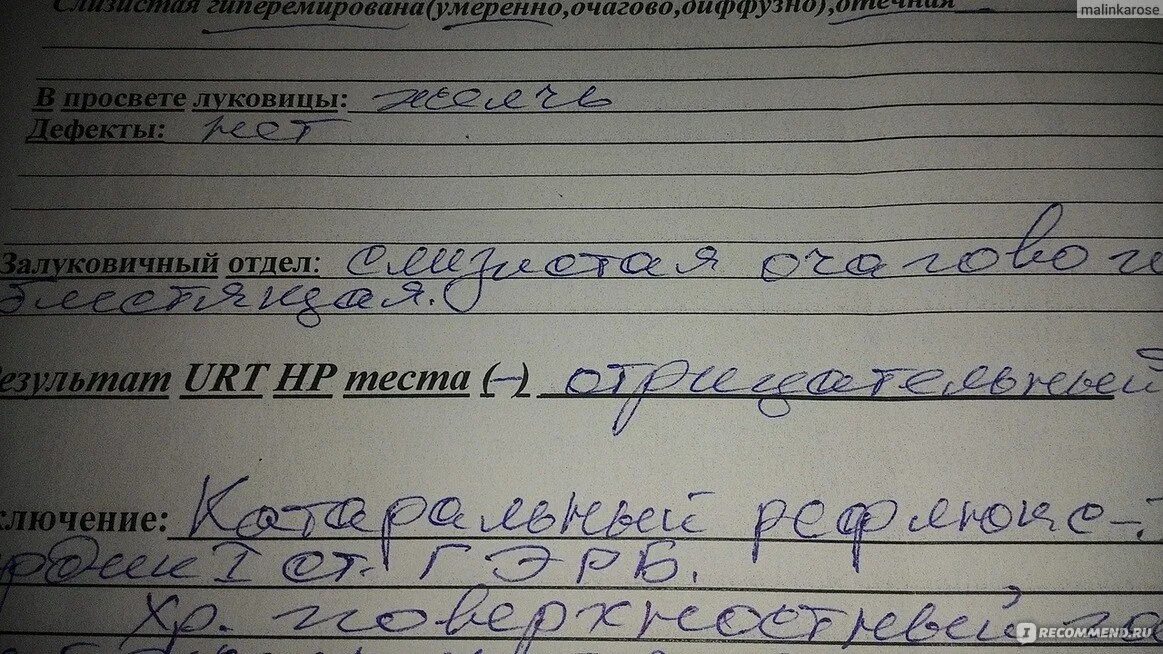 Слизистая гиперемирована(умеренно,очагово,диффузно),отечная
malinkarose
В просвете луковицы: желчь
Дефекты: нет
Залуковичный отдел: слизистая очагово
блестящая.
Результат URT HP теста (–) отрицательный
ключение: Катаральный рефлюкс-
I ст. ГЭРБ.
Хр. поверхностный
RECOMMEND.RU